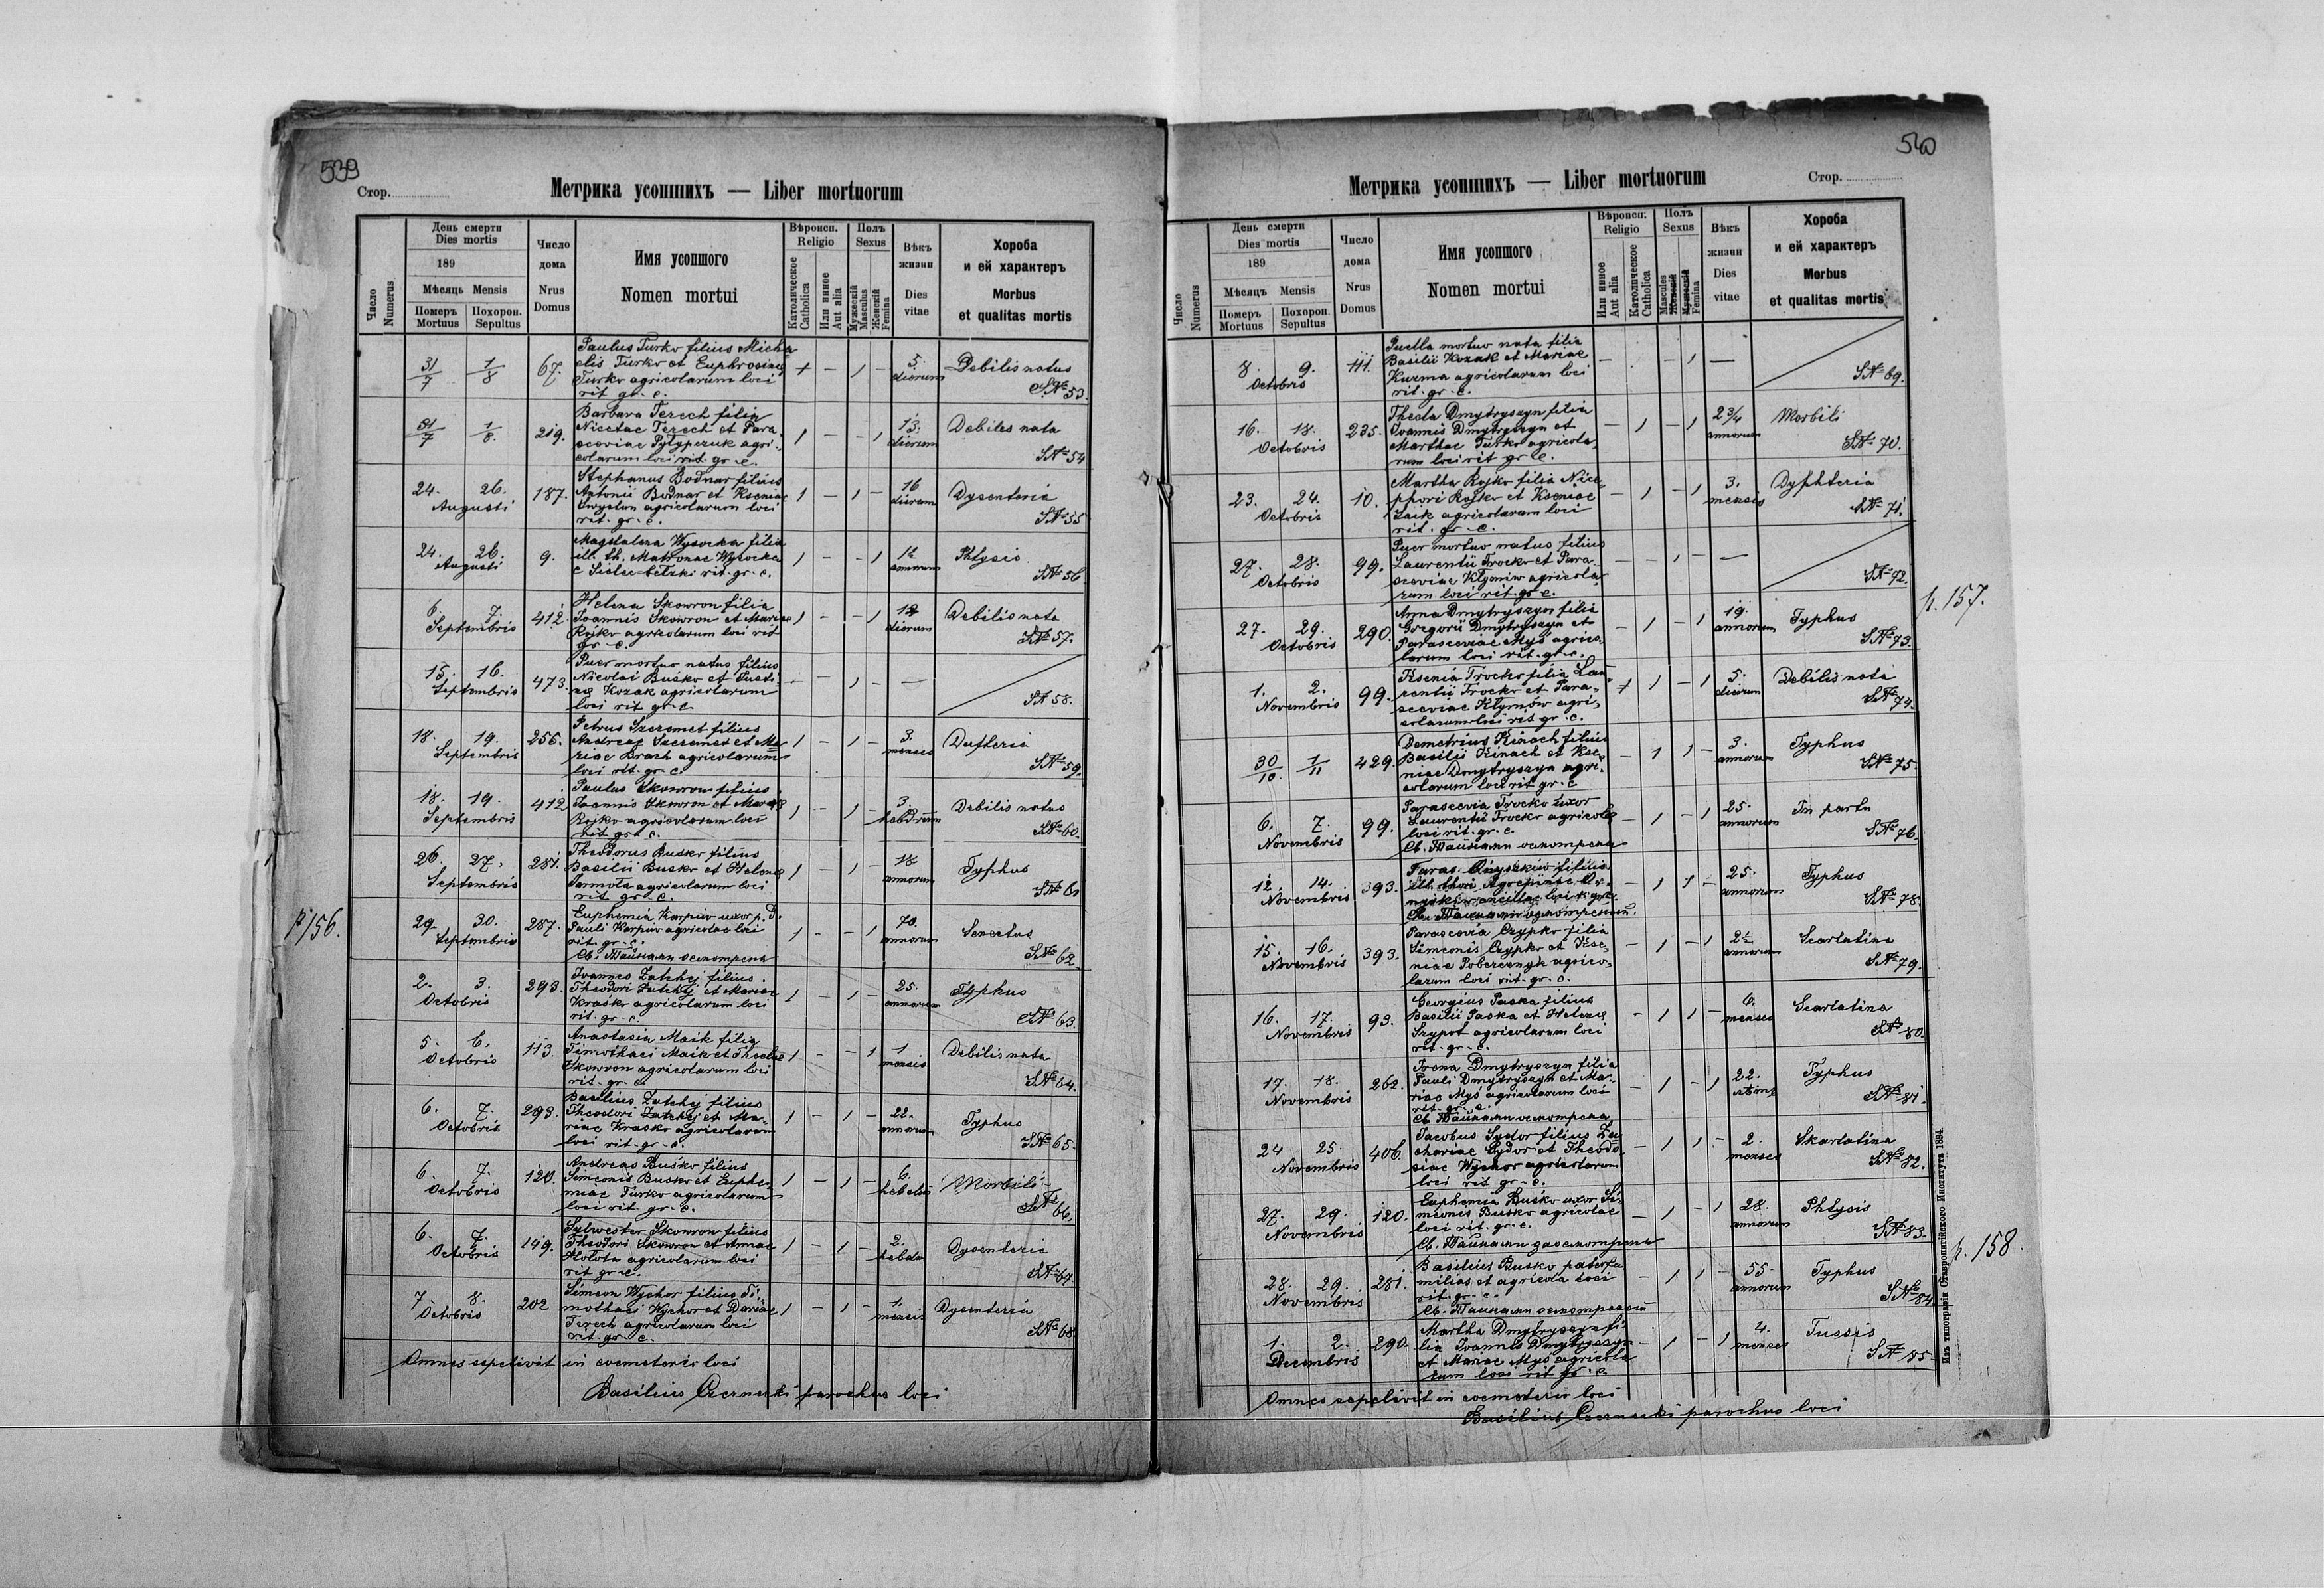 539
Стор.
Метрика усопшихъ — Liber mortuorum
Число Numerus
День смерти Dies mortis
189
Мѣсяць Mensis
Померъ Mortuus
Похорон. Sepultus
Число дома Nrus Domus
Имя усопшого Nomen mortui
Вѣроисп. Religio
Католическое Catholica
Или инное Aut alia
Полъ Sexus
Мужескій Masculus
Женскій Femina
Вѣкъ жизни Dies vitae
Хороба и ей характеръ Morbus et qualitas mortis
31/7 1/8 67. Paulus Turko filius Micha-
elis Turko et Euphrosinae
Turko agricolarum loci
rit gr. c.
+ — 1 — 5. dierum Debilis natus
S№ 53.
31/7 1/8. 219. Barbara Terech filia
Nicetae Terech et Para-
sceviae Pytypczuk agri-
colarum loci rit. gr. c.
1 — — 1 13. dierum Debiles nata
S№ 54
24. 26. Augusti 187. Stephanus Bodnar filius
Antonii Bodnar et Kseniae
agricolarum loci
rit. gr. c.
1 — 1 — 16 dierum Dysenteria
S№ 55
24. 26. Augusti 9. Magdalena Wysocka filia
ill. th. Matronae Wysocka
rit. gr. c.
1 — — 1 annorum Phtysis
S№ 56
6. 7. Septembris 412. Helena Skowron filia
Joannis Skowron et Mariae
Rojko agricolarum loci rit
gr c.
1 — — 1 dierum Debilis nata
S№ 57.
15. 16. Septembris 473. Puer mortuo natus filius
Nicolai Busko et Justi-
nae Kozak agricolarum
loci rit gr. c
— — 1 — —
S№ 58.
18. 19. Septembris 256. Petrus Szeremet filius
Andreae Szeremet et Ma-
riae Brach agricolarum
loci rit. gr. c.
1 — 1 — 3. menses Dufteria
S№ 59.
18. 19. Septembris 412 Paulus Skowron filius
Joannis Skowron et Mariae
Rojko agricolarum loci
rit gr. c.
1 — 1 — 3. Debilis natus
S№ 60.
26. 27. Septembris 281. Theodorus Busko filius
Basilii Busko et Helenae
Jarmola agricolarum loci
rit gr. c.
1 — 1 — 18 annorum Typhus
S№ 61
p. 156.
29. 30. Septembris 287. Euphemia Karpiw uxor p. d.
Pauli Karpiw agricolae loci
rit. gr. c.
Св. Тайнами осмотрена
1 — — 1 70. annorum Senectus
S№ 62
2. 3. Octobris 293. Ioannes Zatchej filius
Theodori Zatchej et Mariae
Krasko agricolarum loci
rit. gr. c.
1 — 1 — 25. annorum Typhus
S№ 63.
5. 6. Octobris 113. Anastasia Maik filia
Timothaei Maik et Theclae
Skowron agricolarum loci
rit. gr. c.
1 — — 1 1 mensis Debilis nata
S№ 64.
6. 7. Octobris 293. Basilius Zatchej filius
Theodori Zatchej et Ma-
riae Krasko agricolarum
loci rit. gr. c.
1 — 1 — 22. annorum Typhus
S№ 65.
6. 7. Octobris 120. Andreas Busko filius
Simeonis Busko et Euphe-
miae Turko agricolarum
loci rit gr. c.
1 — 1 — 6. Morbili
S№ 66.
6. 7. Octobris 149. Sylwester Skowron filius
Theodori Skowron et Annae
Holota agricolarum loci
rit gr. c.
1 — 1 — 2. Dysenteria
S№ 67.
7 8. Octobris 202 Simeon Wychor filius Ti-
mothaei Wychor et Dariae
Terech agricolarum loci
rit. gr. c.
1 — 1 — 1. mensis Dysenteria
S№ 68.
Omnes sepelivit in coemeterio loci
Basilius Czernecki parochus loci
540
Метрика усопшихъ — Liber mortuorum
Стор.
Число Numerus
День смерти Dies mortis
189
Мѣсяць Mensis
Померъ Mortuus
Похорон. Sepultus
Число дома Nrus Domus
Имя усопшого Nomen mortui
Вѣроисп. Religio
Или инное Aut alia
Католическое Catholica
Полъ Sexus
Masculus Женскій
Мужескій Femina
Вѣкъ жизни Dies vitae
Хороба и ей характеръ Morbus et qualitas mortis
8. 9. Octobris 111. Puella mortuo nata filia
Basilii Kozak et Mariae
Kuzma agricolarum loci
rit. gr. c.
— — 1 —
S№ 69.
16. 18. Octobris 235. Thecla Dmytryszyn filia
Ioannis Dmytryszyn et
Marthae Turko agricola-
rum loci rit gr c.
— 1 — 1 2 3/4 annorum Morbili
S№ 70.
23. 24. Octobris 10. Martha Rojko filia Nice-
phori Rojko et Kseniae
Zaik agricolarum loci
rit. gr. c.
— 1 — 1 3. mensis Dyphteria
S№ 71.
27. 28. Octobris 99. Puer mortuo natus filius
Laurentii Trocko et Para-
sceviae Klymiw agricola-
rum loci rit. gr c.
— — 1 — —
S№ 72.
p. 157.
27. 29. Octobris 290. Anna Dmytryszyn filia
Gregorii Dmytryszyn et
Parasceviae Myś agrico-
larum loci rit. gr. c.
— 1 — 1 19. annorum Typhus
S№ 73.
1. 2. Novembris 99. Ksenia Trocko filia Lau-
rentii Trocko et Para-
sceviae Klymów agri-
colarum loci rit gr. c.
+ 1 — 1 5. dierum Debilis nata
S№ 74.
30/10. 1/11 429. Demetrius Kinach filius
Basilii Kinach et Kse-
niae Dmytryszyn agri-
colarum loci rit. gr. c
— 1 1 — 3. annorum Typhus
S№ 75.
6. 7. Novembris 99. Parascevia Trocko uxor
Laurentii Trocko agricolae
loci rit. gr. c.
Св. Тайнами осмотрена
— 1 — 1 25. annorum In partu
S№ 76.
12. 14. Novembris 393. Taras filius
ill. thori
ancillae loci r. gr. c.
Св. Тайнами осмотреный.
— 1 1 — 25. annorum Typhus
S№ 78.
15. 16. Novembris 393. Parascevia Czypko filia
Simeonis Czypko et Kse-
niae Pobereznyk agrico-
larum loci rit. gr. c.
— 1 — 1 annorum Scarlatina
S№ 79.
16. 17. Novembris 93. Georgius Paska filius
Basilii Paska et Helenae
Szypot agricolarum loci
rit. gr. c.
— 1 1 — 6. menses Scarlatina
S№ 80.
17. 18. Novembris 262. Irena Dmytryszyn filia
Pauli Dmytryszyn et Ma-
riae Myś agricolarum loci
rit. gr. c.
Св. Тайнами осмотрена
— 1 — 1 22. Typhus
S№ 81.
24 25. Novembris 406. Jacobus Sydor filius Za-
chariae Sydor et Theodo-
siae Wychor agricolarum
loci rit gr. c.
— 1 1 — 2. menses Skarlatina
S№ 82.
27. 29. Novembris 120. Euphemia Busko uxor Si-
meonis Busko agricolae
loci rit. gr. c.
Св. Тайнами заосмотрена
— 1 — 1 28. annorum Phtysis
S№ 83.
p. 158.
28. 29. Novembris 281. Basilius Busko paterfa-
milias et agricola loci
rit. gr. c.
Св. Тайнами осмотреный
— 1 1 — 55. annorum Typhus
S№ 84.
1. 2. Decembris 290. Martha Dmytryszyn fi-
lia Ioannis Dmytryszyn
et Mariae Myś agricola-
rum loci rit gr. c.
— 1 — 1 4. menses Tussis
S№ 85
Omnes sepelivit in coemeterio loci
Basilius Czernecki parochus loci
Изъ типографіи Ставропигійского Института 1894.